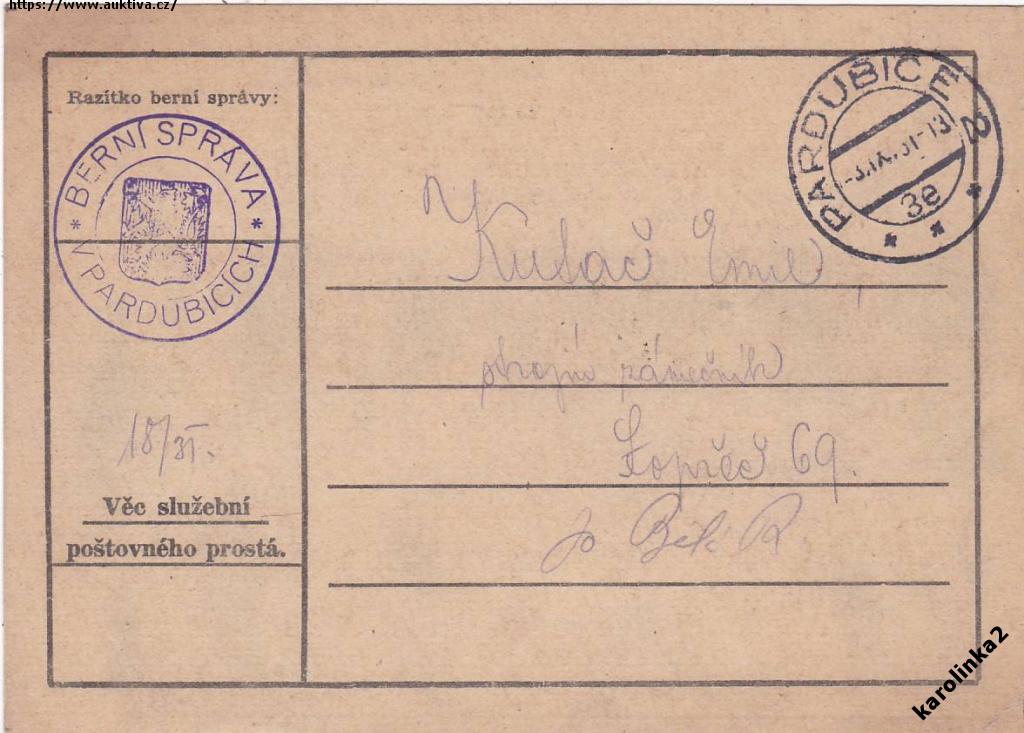 https://www.auktiva.cz/
Razítko berní správy:
* BERNÍ SPRÁVA *
V PARDUBICÍCH
18/XI.
Věc služební
poštovného prostá.
PARDUBICE 2
-3.IX.31-13
3e
Emil,
strojní zámečník
Lopřeč 69.
karolinka2